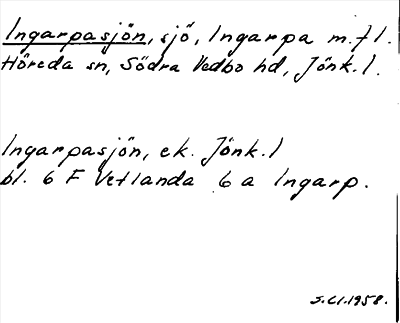 Ingarpasjön, sjö, Ingarpa m.fl.
Höreda sn, Södra Vedbo hd, Jönk.l.
Ingarpasjön, ek. Jönk.l
bl. 6 F Vetlanda 6 a Ingarp.
S.Cl.1958.